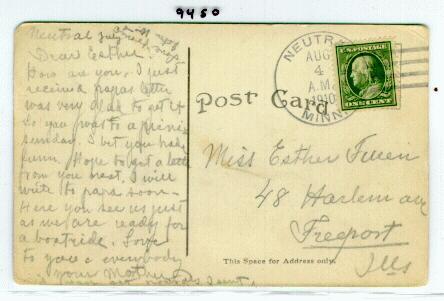 9450
Neutral
Dear Esther.
How are you. I just
received papas letter
was very glad to get it
So you was to a picnic
sunday. I bet you had
funn. Hope to get a letter
from you next. I will
write to papa soon.
Here you see us just
as we are ready for
a boatride. Love
to you & everybody
your Mother
Post Card
NEUTRAL
AUG
4
A.M.
1910
MINN.
U.S. POSTAGE
ONE CENT
Miss Esther
48 Harlem ave
Freeport
Ills
This Space for Address only.